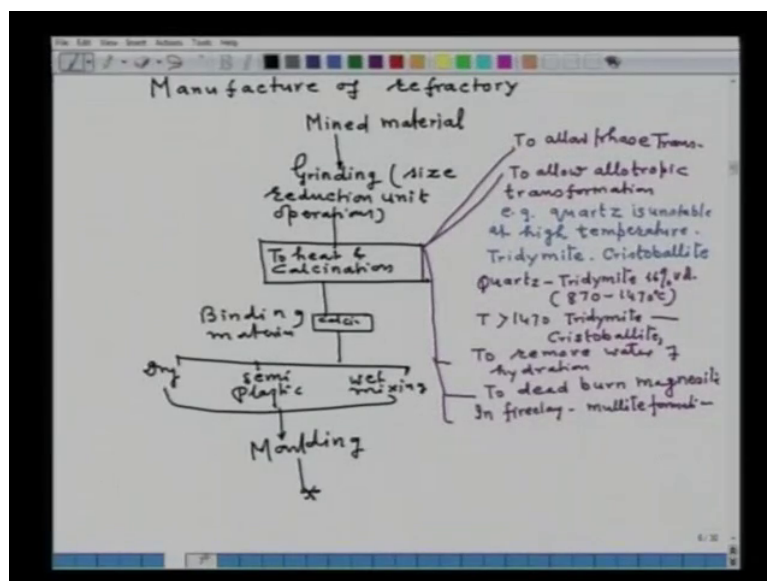 File Edit View Insert Actions Tools Help
Manufacture of refractory
Mined material
Grinding (size
reduction unit
operations)
To heat &
Calcination
Binding
Calcin
Dry
semi
plastic
wet
mixing
Moulding
To allow phase Trans.
To allow allotropic
transformation
e.g. quartz is unstable
at high temperature.
Tridymite. Cristoballite
Quartz - Tridymite 16%
(870-1470°C)
T > 1470 Tridymite —
Cristoballite,
To remove water of
hydration
To dead burn magnesite
In fireclay - mullite